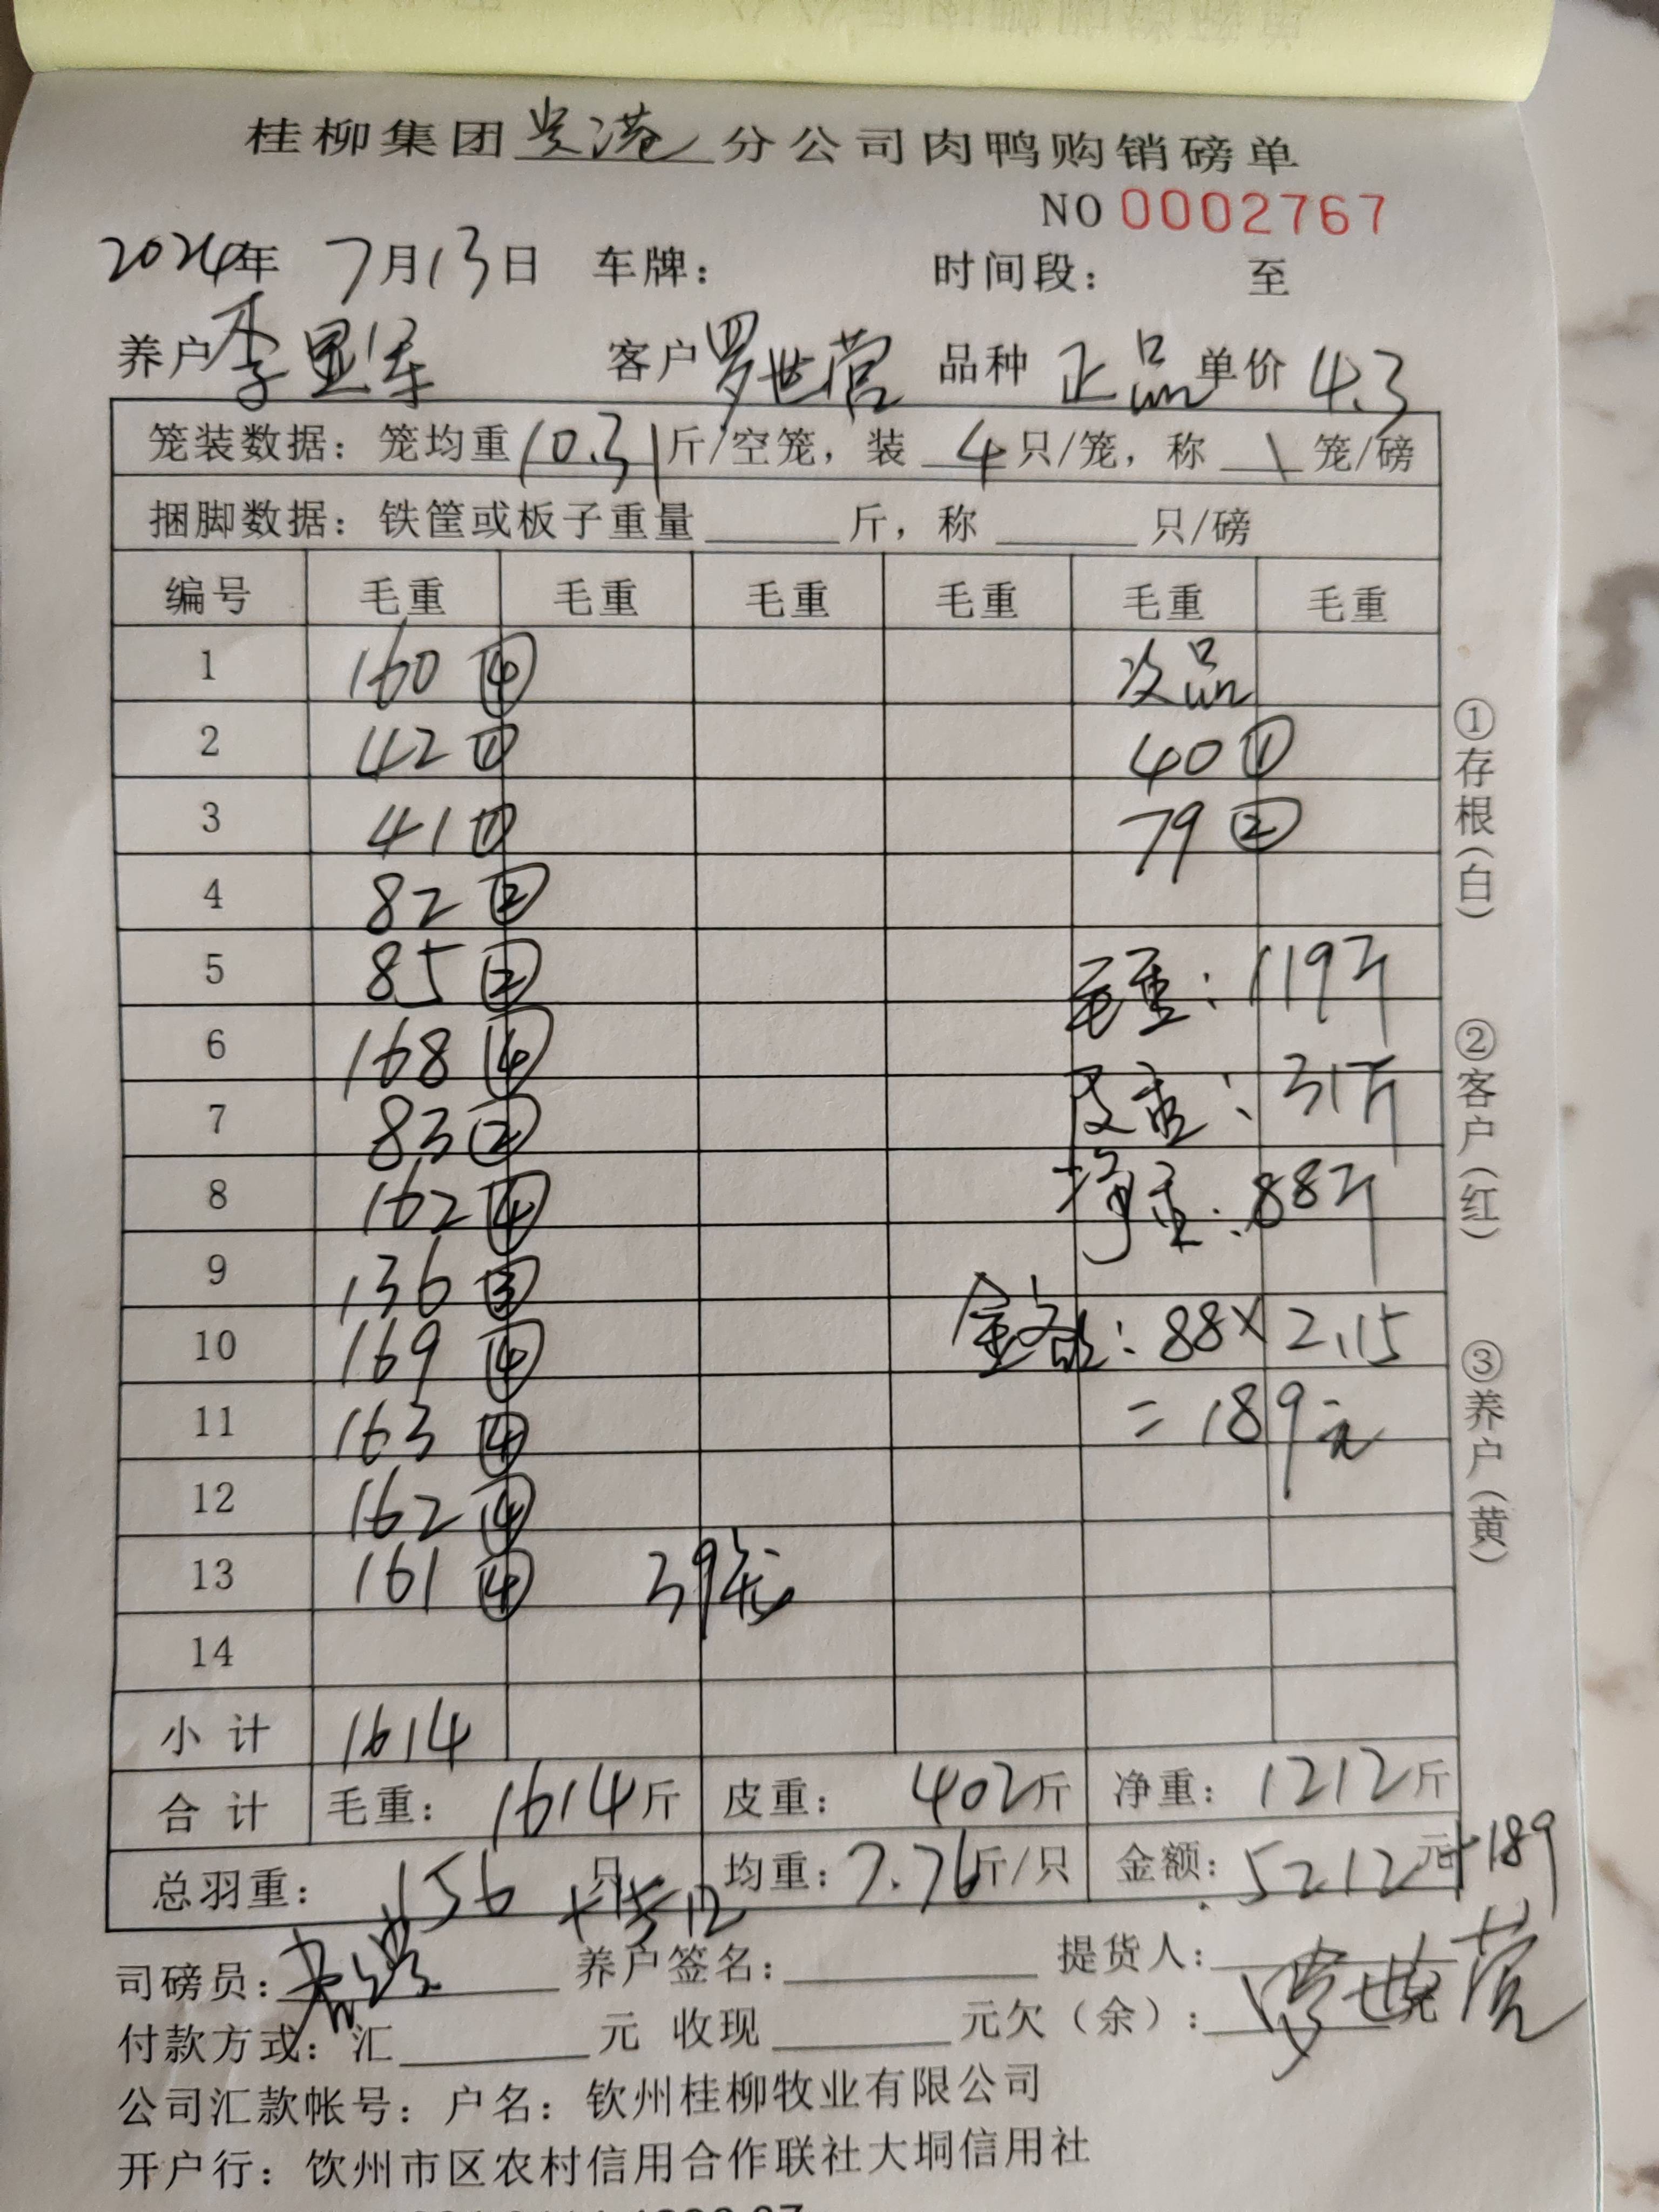 桂柳集团贵港分公司肉鸭购销磅单
NO 0002767
2024年 7月13日 车牌： 时间段： 至
养户 李 客户 罗世营 品种 正品 单价 4.3
笼装数据：笼均重10.31斤/空笼，装 4 只/笼，称 1 笼/磅
捆脚数据：铁筐或板子重量______斤，称______只/磅
编号 毛重 毛重 毛重 毛重 毛重 毛重
1 160 ④ 次品
2 42 ① 40 ①
3 41 ① 79 ②
4 82 ②
5 85 ② 毛重：119斤
6 168 ④ 皮重：31斤
7 83 ②
8 162 ④ 净重：88斤
9 136 ③
10 169 ④ 金额：88×2.15
11 163 ④ =189元
12 162 ④
13 161 ④ 39笼
14
小计 1614
合计 毛重：1614斤 皮重：402斤 净重：1212斤
总羽重：156只 +12 均重：7.76斤/只 金额：5212元+189
司磅员： 养户签名： 提货人：罗世营
付款方式：汇______元 收现______元欠（余）：______元
公司汇款帐号：户名：钦州桂柳牧业有限公司
开户行：钦州市区农村信用合作联社大垌信用社
①存根（白）
②客户（红）
③养户（黄）